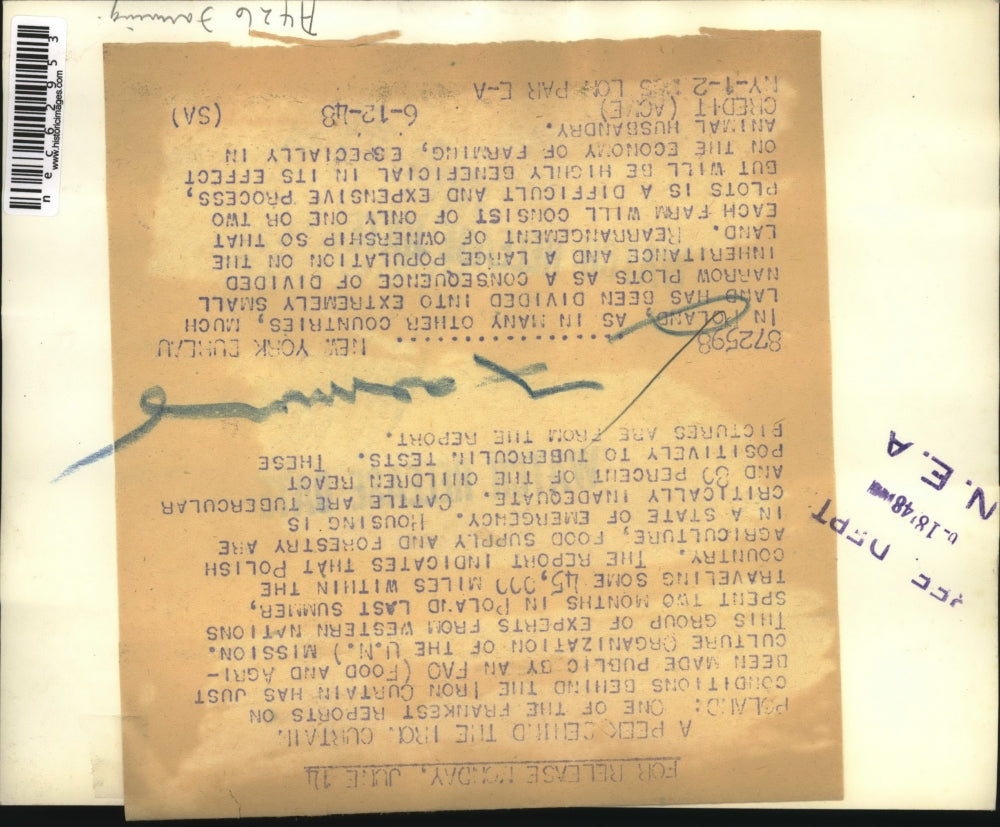 FOR RELEASE MONDAY, JUNE 14
A PEEK BEHIND THE IRON CURTAIN
POLAND: ONE OF THE FRANKEST REPORTS ON
CONDITIONS BEHIND THE IRON CURTAIN HAS JUST
BEEN MADE PUBLIC BY AN FAO (FOOD AND AGRI-
CULTURE ORGANIZATION OF THE U.N.) MISSION.
THIS GROUP OF EXPERTS FROM WESTERN NATIONS
SPENT TWO MONTHS IN POLAND LAST SUMMER,
TRAVELING SOME 45,000 MILES WITHIN THE
COUNTRY. THE REPORT INDICATES THAT POLISH
AGRICULTURE, FOOD SUPPLY AND FORESTRY ARE
IN A STATE OF EMERGENCY. HOUSING IS
CRITICALLY INADEQUATE. CATTLE ARE TUBERCULAR
AND 80 PERCENT OF THE CHILDREN REACT
POSITIVELY TO TUBERCULIN TESTS. THESE
PICTURES ARE FROM THE REPORT.
872598 NEW YORK BUREAU
IN POLAND, AS IN MANY OTHER COUNTRIES, MUCH
LAND HAS BEEN DIVIDED INTO EXTREMELY SMALL
NARROW PLOTS AS A CONSEQUENCE OF DIVIDED
INHERITANCE AND A LARGE POPULATION ON THE
LAND. REARRANGEMENT OF OWNERSHIP SO THAT
EACH FARM WILL CONSIST OF ONLY ONE OR TWO
PLOTS IS A DIFFICULT AND EXPENSIVE PROCESS,
BUT WILL BE HIGHLY BENEFICIAL IN ITS EFFECT
ON THE ECONOMY OF FARMING, ESPECIALLY IN
ANIMAL HUSBANDRY.
CREDIT (ACME) 6-12-48 (SA)
NY-1-2 LON PAR E-A
A426 Farming.
nec62953
www.historicimages.com
DEPT
18'48
N.E.A